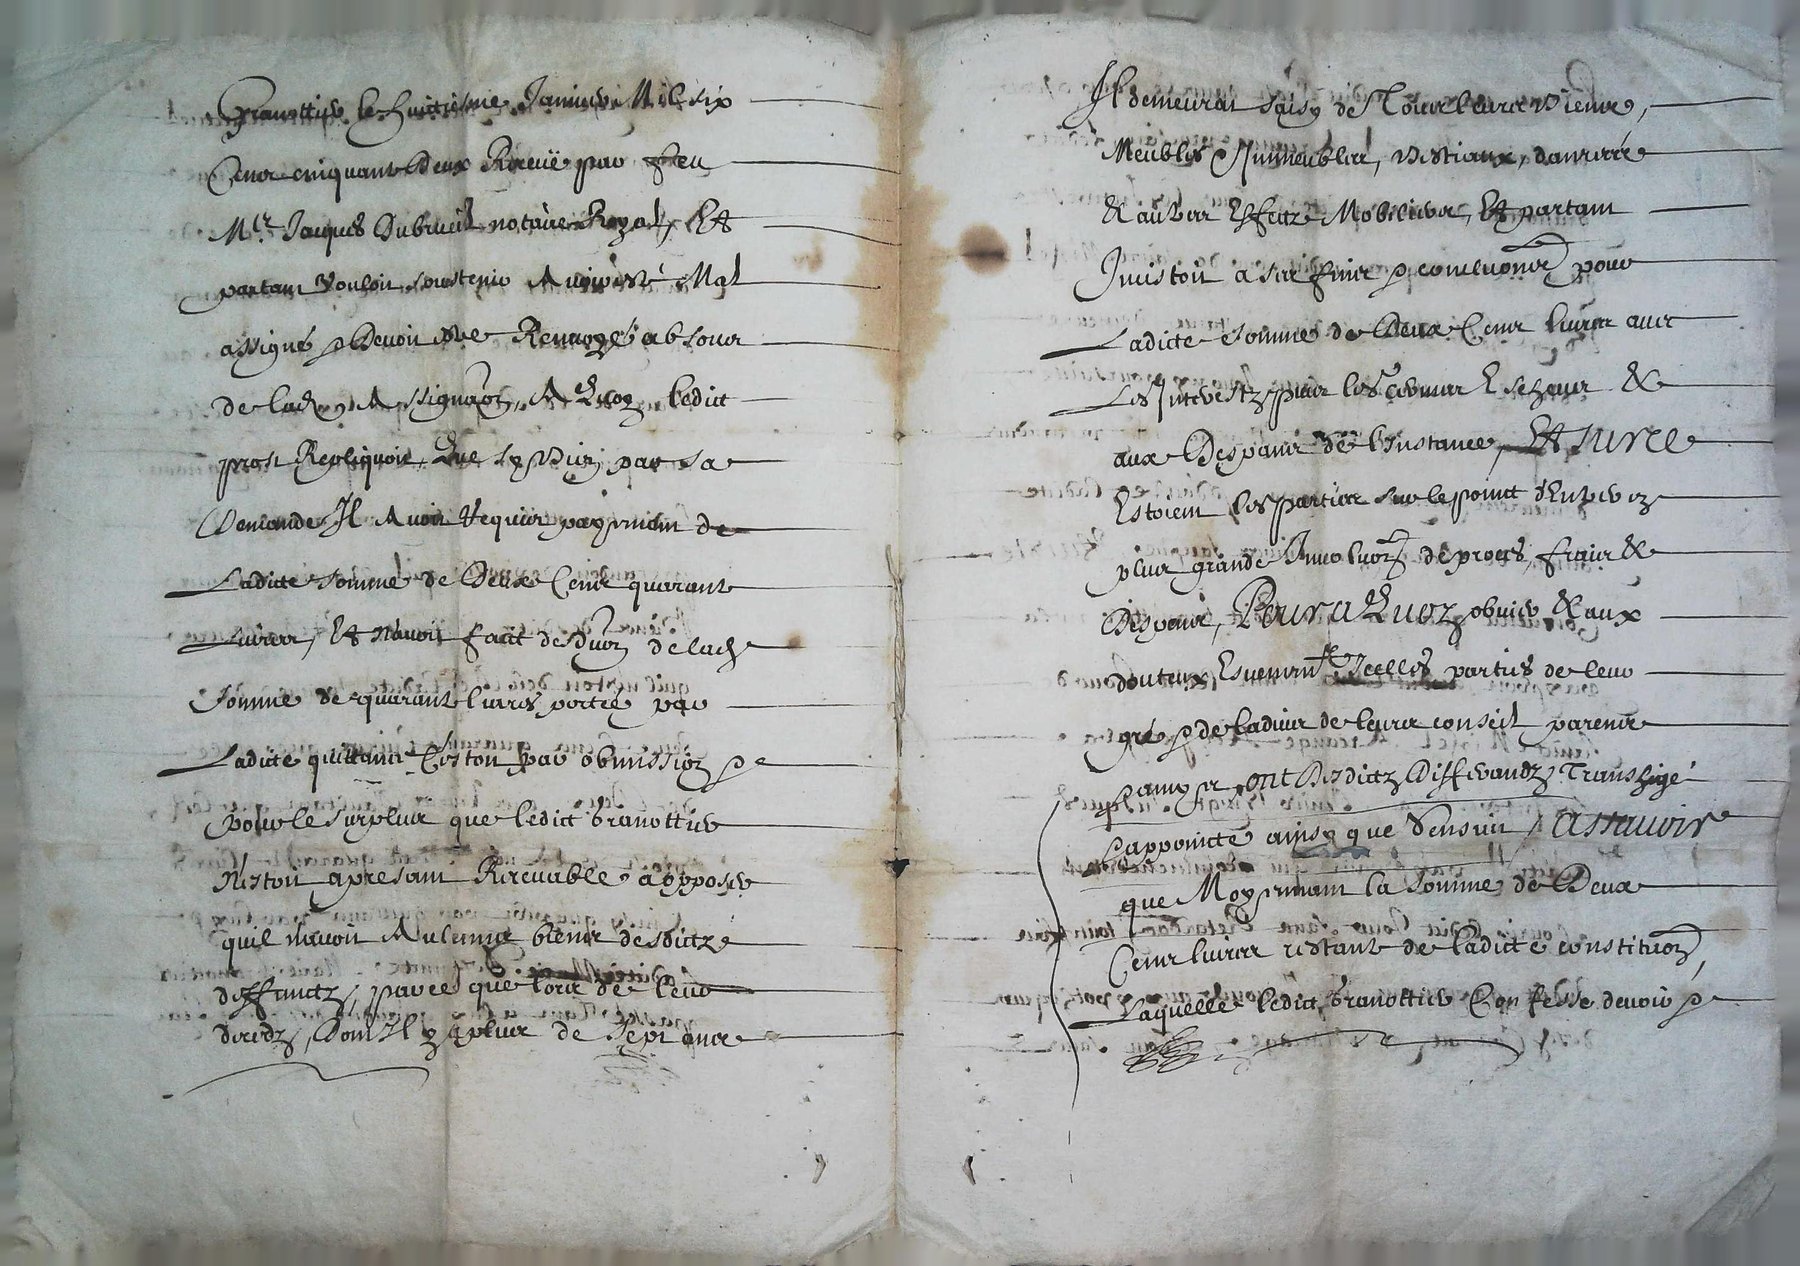 Granottier le huictiesme Janvier Mil six
Cens cinquante Deux Receüe par feu
Mtre Jacques Dubrueil notaire Royal, Et
partant Vouloit soustenir Avoir esté Mal
assigné & Devoit estre Renvoyé absous
de lad. Assignaõn, A Quoy ledict
prost Repliquoit, Que sy bien par sa
Demande Il Avoit Requis payement de
Ladicte somme de Deux Cens quarante
Livres, Et n'avoit faict desduõn de lad.
somme de quarante livres portée par
Ladicte quittance C'estoit par obmission &
pour le surplus que ledict Granottier
N'estoit a presant Recevable a opposer
quil n'avoit Aulcungs biens desdictz
deffunctz, parce que lors de leur
decedz, Dont Il y a plus de Sept ans
Il demeurat saisy de Tous leurs Biens,
Meubles & Immeubles, Bestiaux, danrées
& autres Effectz Mobiliers, Et partant
Insistoit a ses fins & concluõns pour
Ladicte somme de Deux Cens livres avec
Les Interestz puis les termes Escheus &
aux Despans de l'Instance, Et sur ce
Estoient les parties sur le point d'Entrer en
plus grande Involuõn de proces, fraix &
Despans, Pour a Quoy obvier & aux
douteux Evenemtz Icelles parties de leur
gré & de ladvis de leurs conseil parens
& amys ont Desdictz Differandz Transsigé
& appointé ainsy que s'ensuit, Assavoir
que Moyennant la somme de Deux
Cens livres restant de ladicte constituõn,
Laquelle ledict Granottier Confesse devoir &